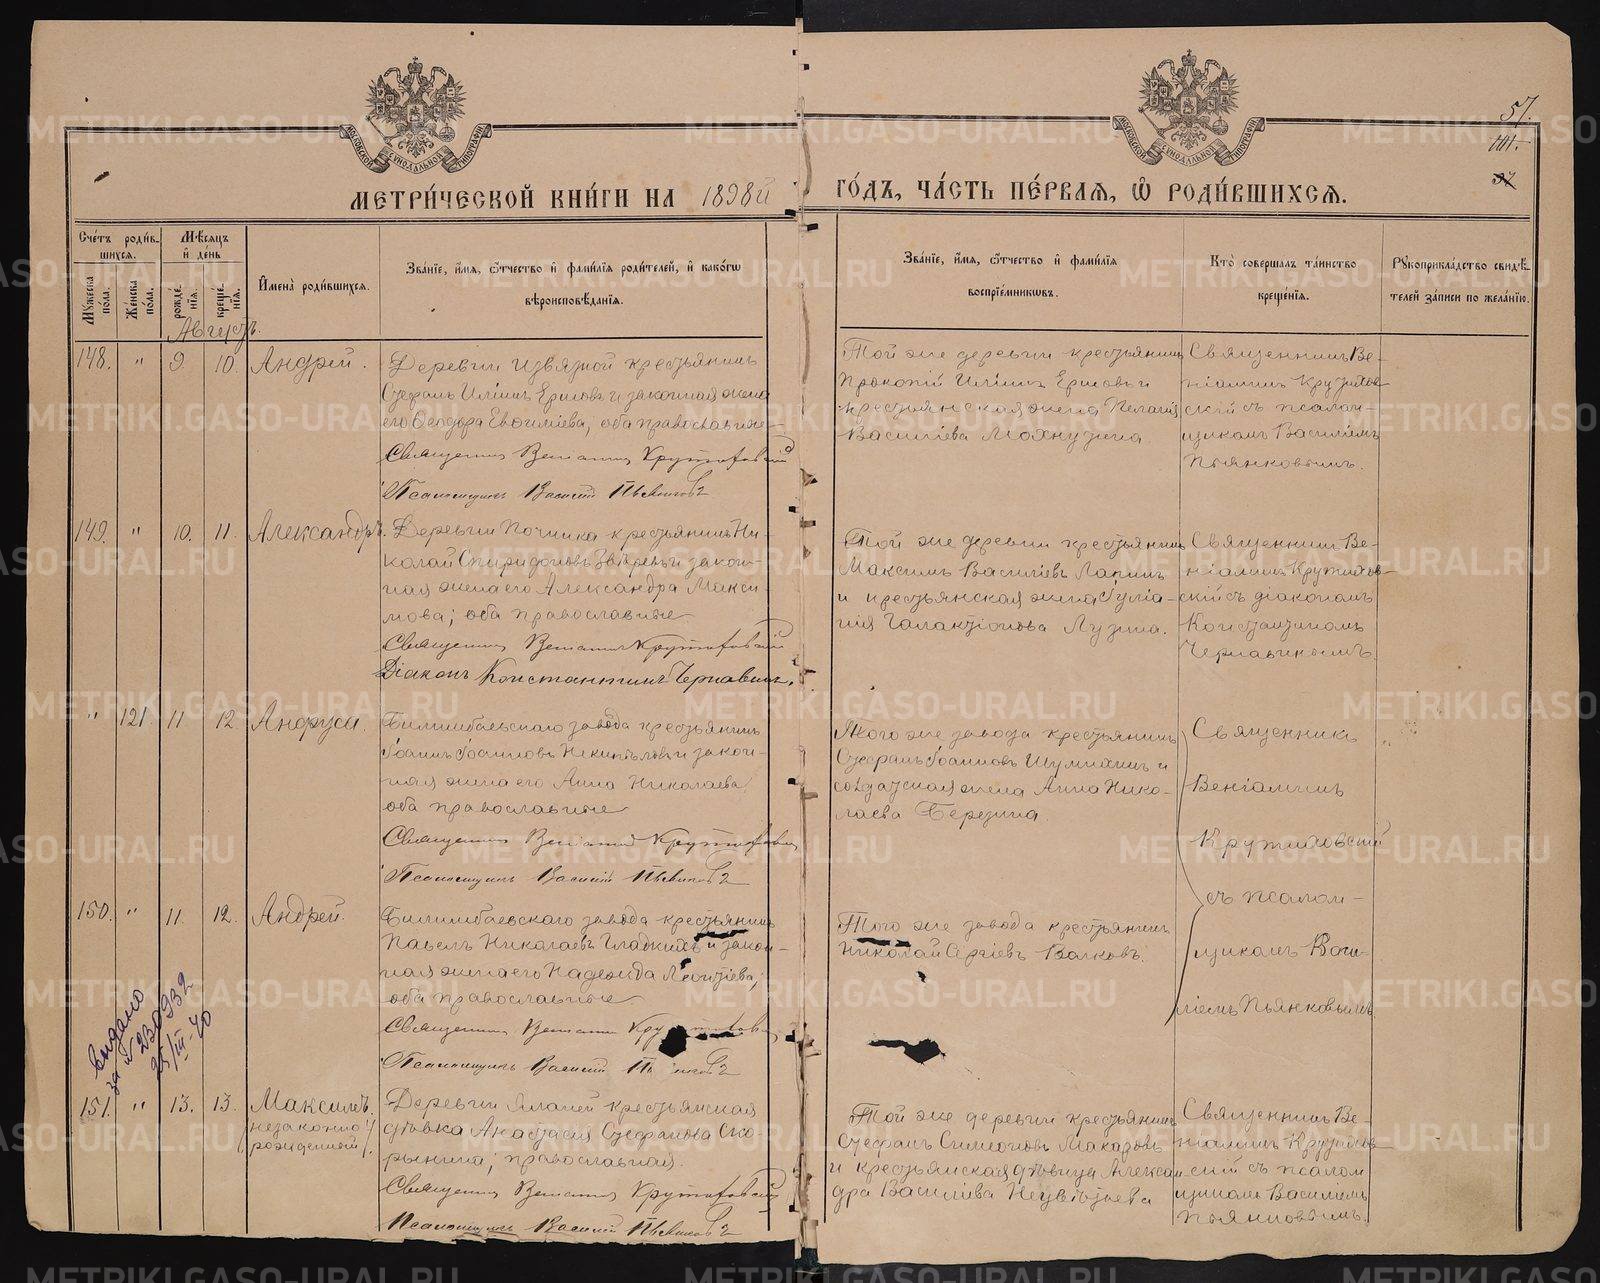 МОСКОВСКОЙ СУНОДАЛЬНОЙ ТИПОГРАФІИ
МОСКОВСКОЙ СУНОДАЛЬНОЙ ТИПОГРАФІИ
57.
101.
МЕТРИ́ЧЕСКОЙ КНИ́ГИ НА 1898й ГО́ДЪ, ЧА́СТЬ ПЕ́РВАЯ, Ѡ РОДИ́ВШИХСЯ.
Сче́тъ роди́в-
шихся.
Му́жеска по́ла.
Же́нска по́ла.
Мѣ́сяцъ
и де́нь
рожде́-
нія.
креще́-
нія.
Имена̀ роди́вшихся.
Зва́ніе, и́мя, о́тчество и фами́лія роди́телей, и како́гѡ
вѣроисповѣ́данія.
Зва́ніе, и́мя, о́тчество и фами́лія
воспріе́мникѡвъ.
Кто̀ соверша́лъ та́инство
креще́нія.
Рукоприкла́дство свидѣ́-
телей за́писи по жела́нію.
Августъ.
148. " 9. 10. Андрей.
Деревни Извязной крестьянинъ
Стефанъ Иліинъ Ершовъ и законная жена
его Ѳеодора Евѳиміева, оба православные
Священникъ Веніаминъ Крутиховскій
Псаломщикъ Василій Пьянковъ
Той же деревни крестьянинъ
Прокопій Иліинъ Ершовъ и
крестьянская жена Пелагія
Василіева Мохнузина.
Священникъ Ве-
ніаминъ Крутихов-
скій съ псалом-
щикомъ Василіемъ
Пьянковымъ.
149. " 10. 11. Александръ.
Деревни Починка крестьянинъ Ни-
колай Спиридоновъ Звѣревъ и закон-
ная жена его Александра Макси-
мова; оба православные.
Священникъ Веніаминъ Крутиховскій
Діаконъ Константинъ Чернавинъ.
Той же деревни крестьянинъ
Максимъ Василіевъ Лапинъ
и крестьянская жена Іуліа-
нія Галактіонова Лузина.
Священникъ Ве-
ніаминъ Крутихов-
скій съ діакономъ
Константиномъ
Чернавинымъ.
" 121 11 12 Анфуса.
Билимбаевскаго завода крестьянинъ
Іоаннъ Іоанновъ Некипѣловъ и закон-
ная жена его Анна Николаева,
оба православные
Священникъ Веніаминъ Крутиховскій
Псаломщикъ Василій Пьянковъ
Того же завода крестьянинъ
Стефанъ Іоанновъ Шумихинъ и
солдатская жена Анна Нико-
лаева Березина.
Священникъ
Веніаминъ
Крутиховскій
съ псалом-
щикомъ Васи-
ліемъ Пьянковымъ
150. " 11. 12. Андрей.
Билимбаевскаго завода крестьянинъ
Павелъ Николаевъ Гладкихъ и закон-
ная жена его Надежда Леонтіева,
оба православные
Священникъ Веніаминъ
Псаломщикъ Василій
Того же завода крестьянинъ
Николай Сергіевъ Волковъ.
Выдано
за № 230932
25/III-40
151. " 13. 13. Максимъ.
(незаконно
рожденный).
Деревни крестьянская
дѣвка Анастасія Стефанова Ско-
рынина; православная.
Священникъ Веніаминъ Крутиховскій
Псаломщикъ Василій Пьянковъ
Той же деревни крестьянинъ
Стефанъ Симеоновъ Макаровъ
и крестьянская дѣвица Алексан-
дра Василіева
Священникъ Ве-
ніаминъ Крутихов-
скій съ псалом
щикомъ Василіемъ
Пьянковымъ.
METRIKI.GASO-URAL.RU